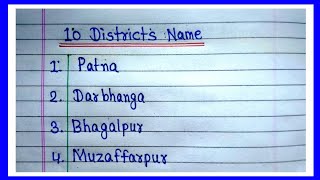 10 Districts Name
1. Patna
2. Darbhanga
3. Bhagalpur
4. Muzaffarpur